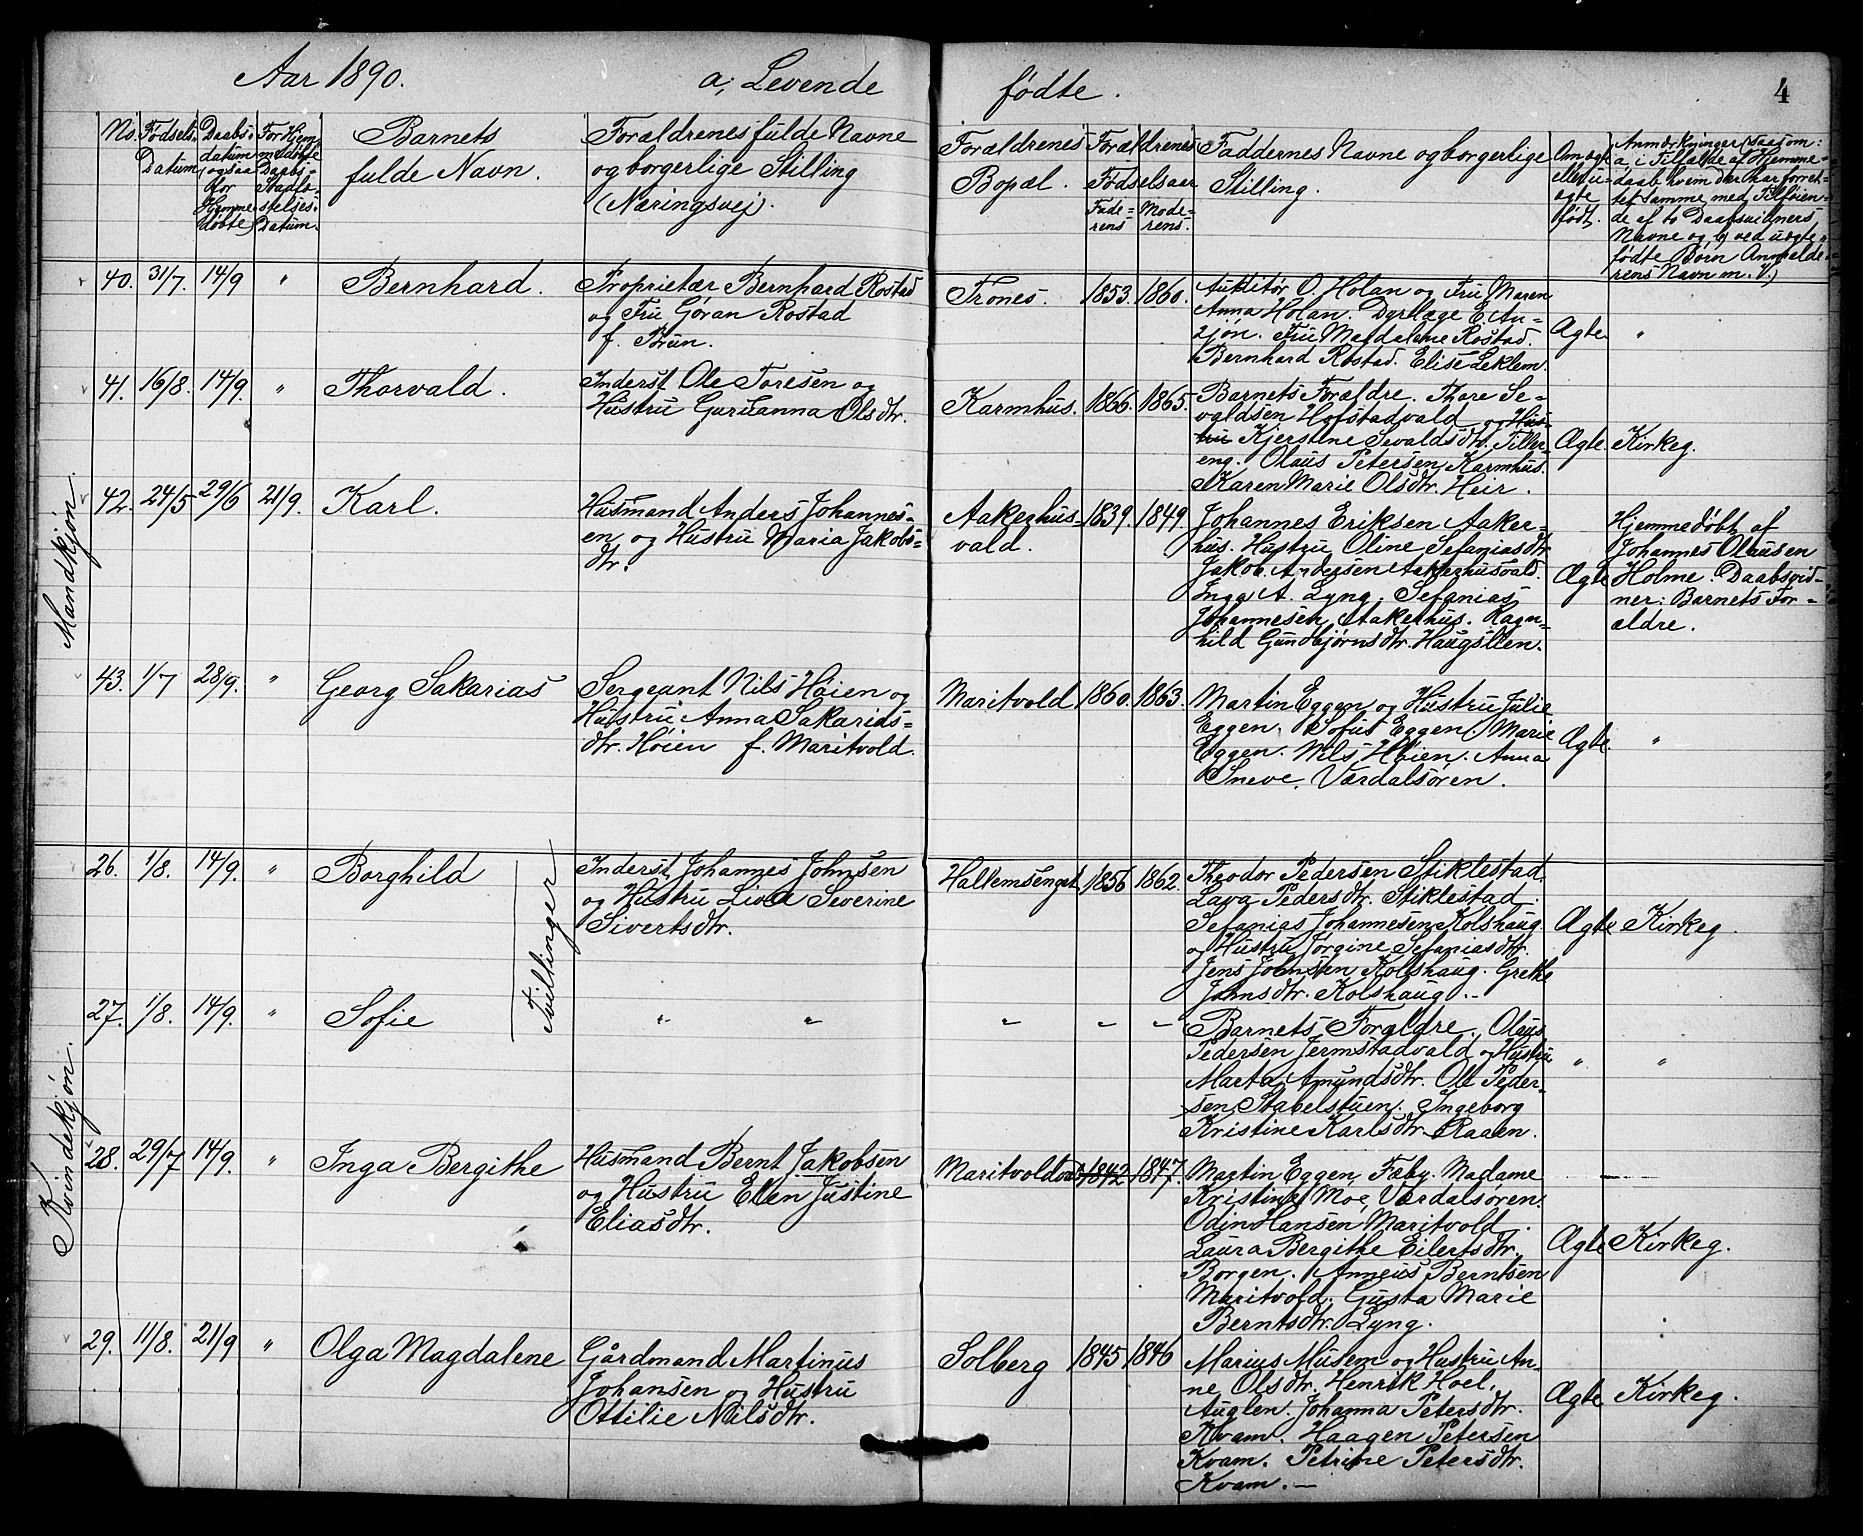 Aar 1890. a, Levende fødte. 4
No.
Fødsels-
Datum
Daabs-
datum
(ogsaa
for
Hjemme-
døbte)
For Hjem-
medøbte
Daabs-
Stadfæ-
stelses-
Datum.
Barnets
fulde Navn.
Forældrenes fulde Navne
og borgerlige Stilling
(Næringsvej).
Forældrenes
Bopæl.
Forældrenes
Fødselsaar
Fade-
rens
Mode-
rens.
Faddernes Navne og borgerlige
Stilling.
Om ægte
eller u-
ægte
født.
Anmærkninger (saasom:
a, i Tilfælde af Hjemme-
daab hvem der har forret-
tet samme, med Tilføien-
de af to Daabsvidners
Navne og b) ved uægte
fødte Børn Anmelde-
rens Navn m. V.)
Mandkjøn.
40. 31/7. 14/9 " Bernhard.
Proprietær Bernhard Rostad
og Fru Göran Rostad
f. Brun.
Trones. 1853. 1860.
Auditør O. Holan og Fru Maren
Anna Holan. Dyrlæge E. An-
zjøn. Fru Magdalene Rostad.
Bernhard Rostad. Elise Leklem.
Ægte "
41. 16/8. 14/9. " Thorvald.
Inderst Ole Toresen og
Hustru Guruanna Olsdtr.
Karmhus. 1866. 1865.
Barnets Forældre. Thore Se-
valdsen Hofstadvald og Hus-
tru Kjerstine Sevaldsdtr. Tiller-
eng. Olaus Petersen Karmhus.
Karen Marie Olsdtr. Heir.
Ægte. Kirkeg.
42. 24/5 29/6 21/9. Karl.
Husmand Anders Johannes-
en og Hustru Maria Jakobs-
dtr.
Aakerhus-
vald.
1839. 1849.
Johannes Eriksen Aaker-
hus. Hustru Oline Sefaniasdtr.
Jakob Andersen Aakerhusvald.
Inga A. Lyng. Sefanias
Johannesen Aakerhus. Ragn-
hild Gundbjørnsdtr. Haugslien.
Ægte
Hjemmedøbt af
Johannes Olausen
Holme. Daabsvid-
ner: Barnets For-
ældre.
43. 1/7 28/9. " Georg Sakarias
Sergeant Nils Høien og
Hustru Anna Sakarias-
dtr. Høien f. Maritvold.
Maritvold. 1860. 1863.
Martin Eggen og Hustru Julie
Eggen. Sofus Eggen. Marie
Eggen. Nils Høien. Anna
Sneve, Værdalsøren.
Ægte. "
Kvindekjøn.
26. 1/8. 14/9. " Borghild
Tvillinger
Inderst Johannes Johnsen
og Hustru Liva Severine
Sivertsdtr.
Hallemsenget 1856 1862.
Theodor Pedersen Stiklestad.
Lava Pedersdtr. Stiklestad.
Sefanias Johannesen Kolshaug
og Hustru Jörgine Sefaniasdtr.
Jens Johnsen Kolshaug. Grethe
Johnsdtr. Kolshaug.-
Ægte Kirkeg.
27. 1/8. 14/9. " Sofie
" " " " "
Barnets Forældre. Olaus
Pedersen Jermstadvald og Hustru
Marta Amundsdtr. Ole Peder-
sen Stabelstuen. Ingeborg
Kristine Karlsdtr. Raaen.
" "
28. 29/7 14/9. " Inga Bergithe
Husmand Bernt Jakobsen
og Hustru Ellen Justine
Eliasdtr.
Maritvoldvald 1842 1847.
Martin Eggen, Fæby. Madame
Kristine Moe, Værdalsøren.
Odin Hansen Maritvold.
Laura Bergithe Eilertsdtr.
Borgen. Anneus Berntsen
Maritvold. Gusta Marie
Berntsdtr. Lyng.
Ægte Kirkeg.
29. 11/8. 21/9 " Olga Magdalene
Gårdmand Martinus
Johansen og Hustru
Ottilie Nilsdtr.
Solberg 1845 1846
Marius Musem og Hustru An-
ne Olsdtr. Henrik Hoel.
Auglen. Johanna Petersdtr.
Kvam. Haagen Petersen
Kvam. Petrine Petersdtr.
Kvam.-
Ægte Kirkeg.